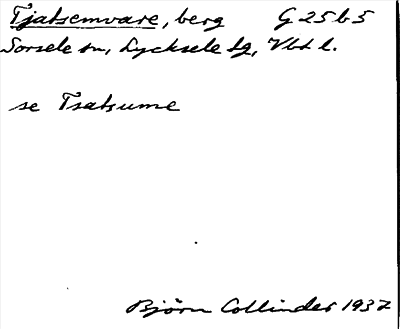 Tjatsemvare, berg G 25 b 5
Sorsele sn, Lycksele lg, Vbt l.
se Tsatsume
Björn Collinder 1937